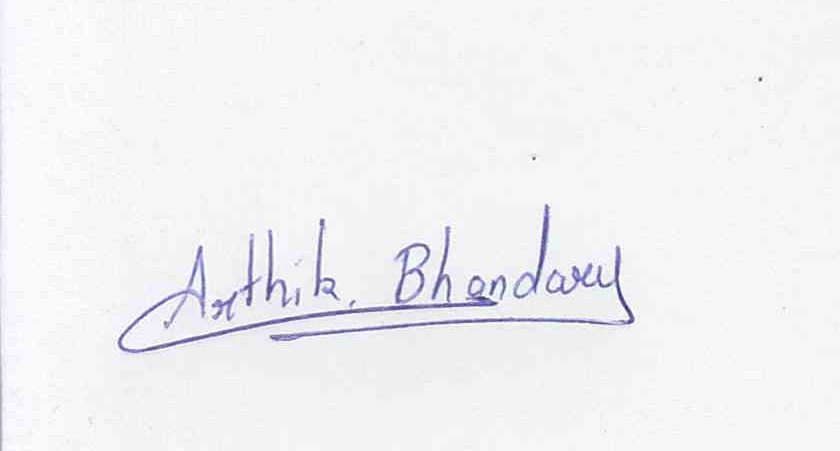 Arthik. Bhandary